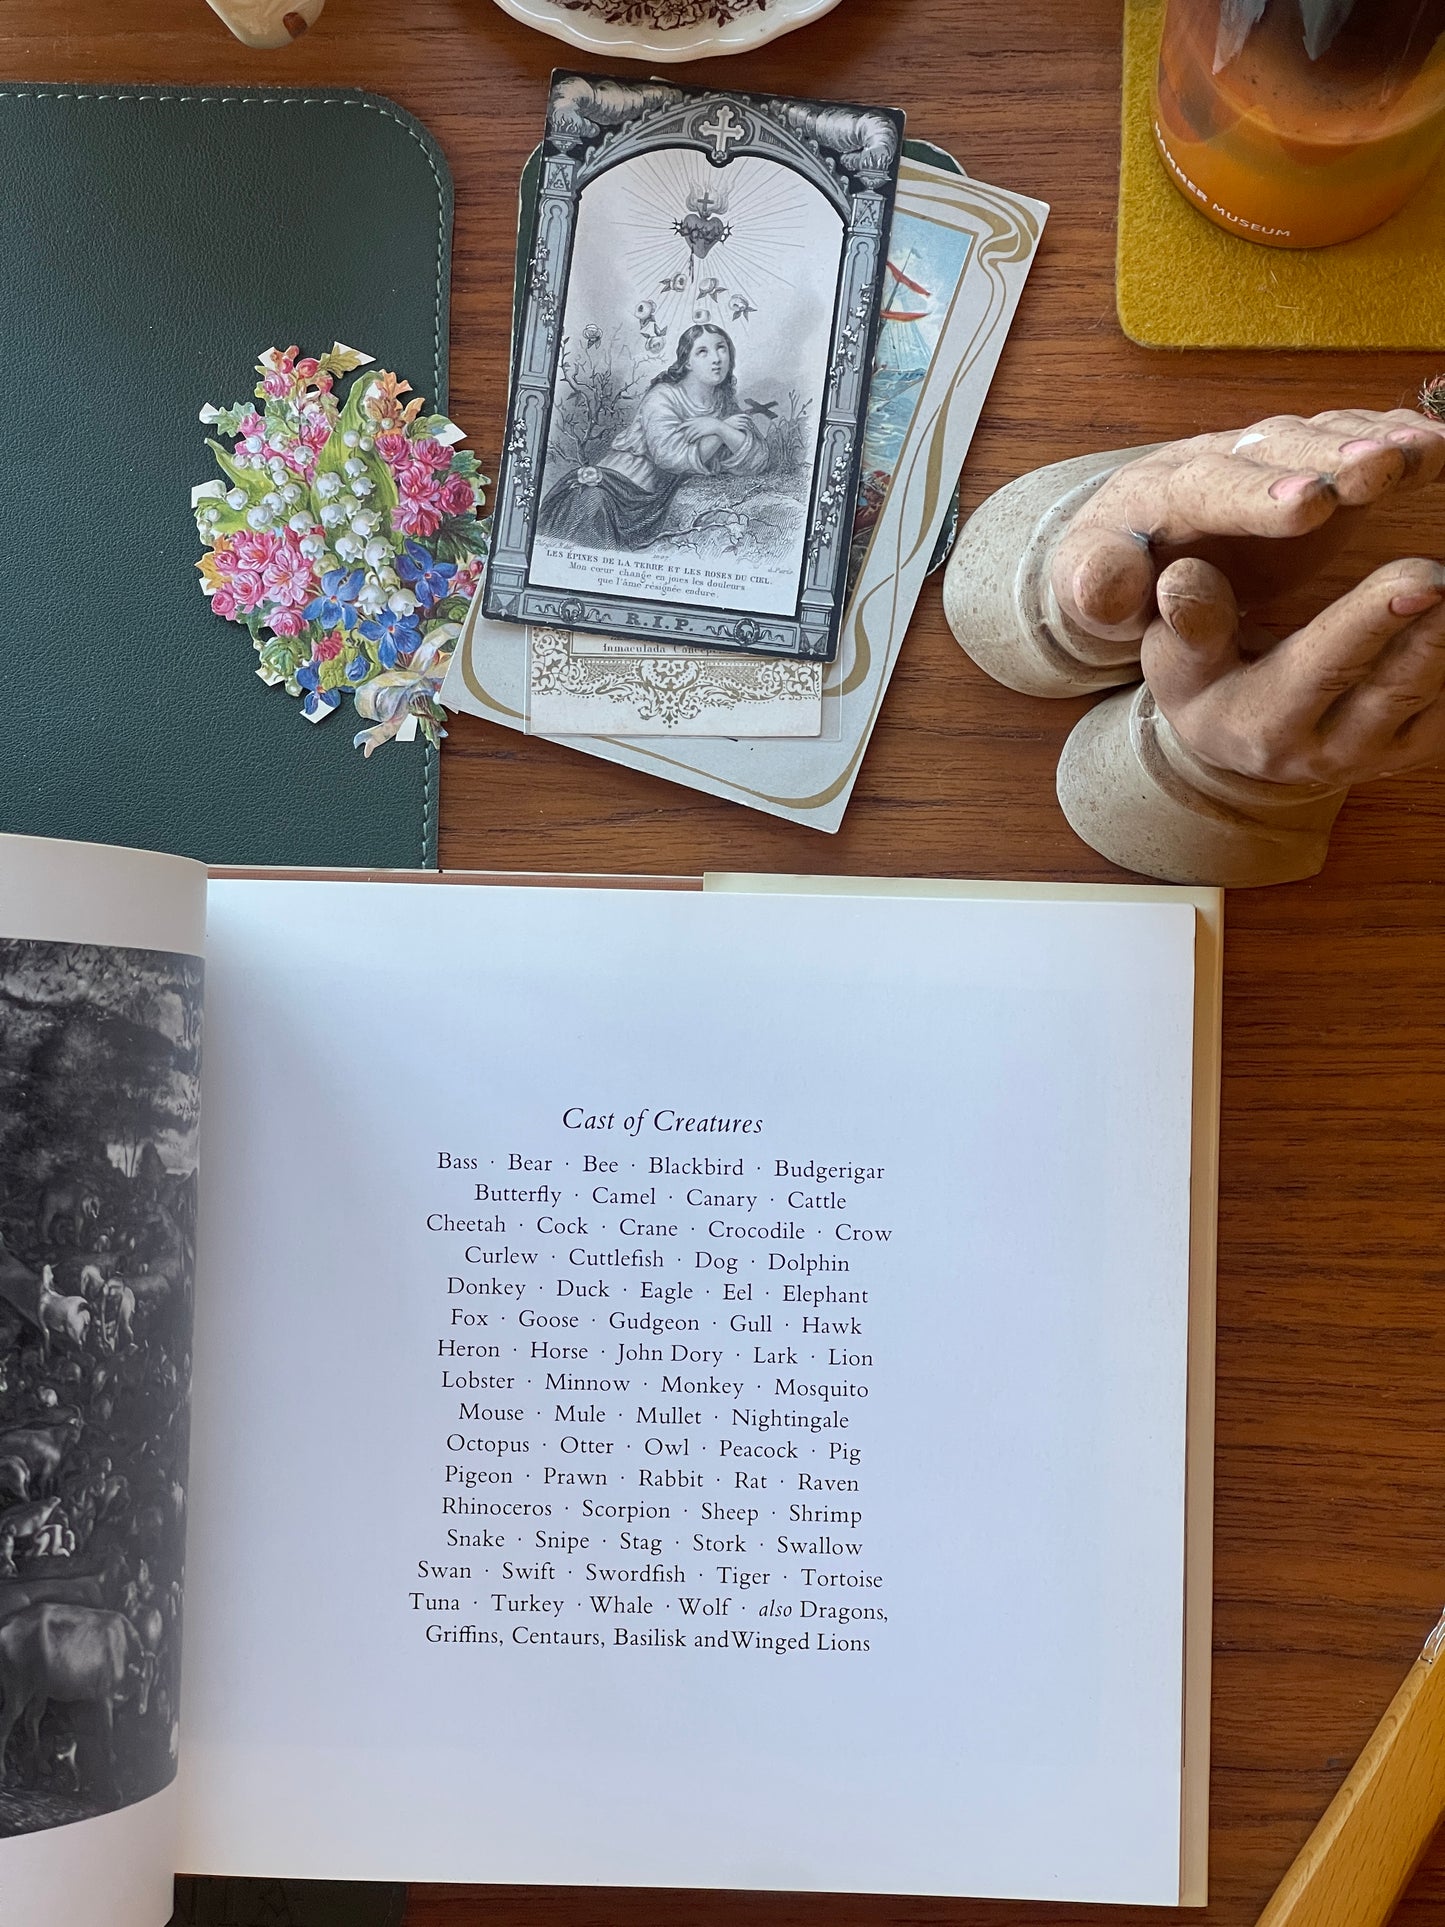 HAMMER MUSEUM
LES ÉPINES DE LA TERRE ET LES ROSES DU CIEL.
Mon cœur change en joies les douleurs
que l'âme résignée endure.
R.I.P.
Inmaculada
Cast of Creatures
Bass · Bear · Bee · Blackbird · Budgerigar
Butterfly · Camel · Canary · Cattle
Cheetah · Cock · Crane · Crocodile · Crow
Curlew · Cuttlefish · Dog · Dolphin
Donkey · Duck · Eagle · Eel · Elephant
Fox · Goose · Gudgeon · Gull · Hawk
Heron · Horse · John Dory · Lark · Lion
Lobster · Minnow · Monkey · Mosquito
Mouse · Mule · Mullet · Nightingale
Octopus · Otter · Owl · Peacock · Pig
Pigeon · Prawn · Rabbit · Rat · Raven
Rhinoceros · Scorpion · Sheep · Shrimp
Snake · Snipe · Stag · Stork · Swallow
Swan · Swift · Swordfish · Tiger · Tortoise
Tuna · Turkey · Whale · Wolf · also Dragons,
Griffins, Centaurs, Basilisk andWinged Lions